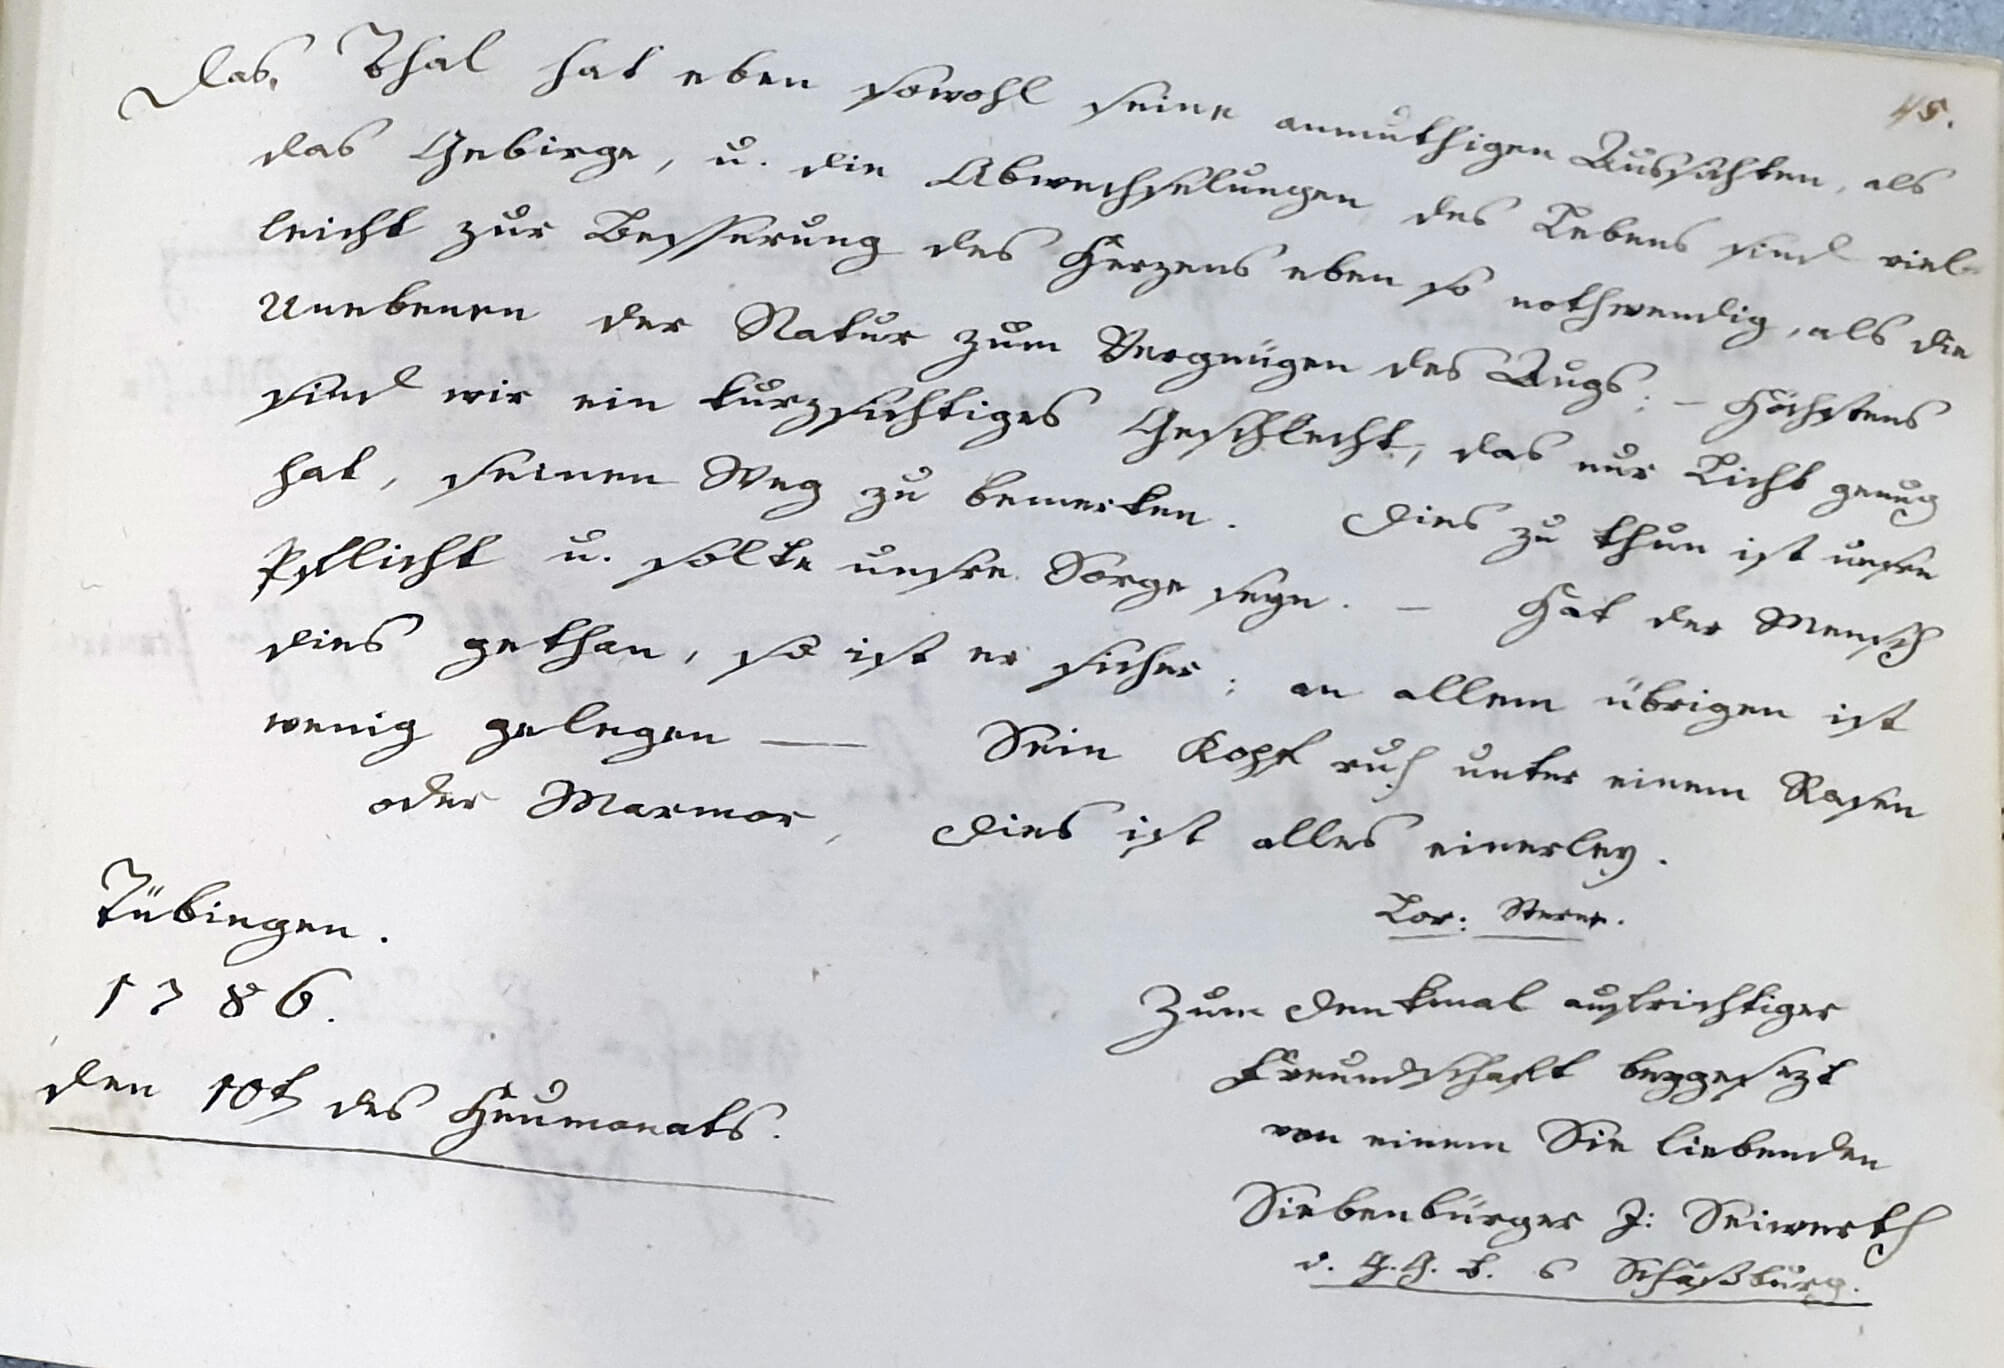 45.
Das Thal hat eben sowohl seine anmuthigen Aussichten, als
das Gebirge, u. die Abwechselungen des Lebens sind viel-
leicht zur Besserung des Herzens eben so nothwendig, als die
Unebenen der Natur zum Vergnügen des Augs; – Höchstens
sind wir ein kurzsichtiges Geschlecht, das nur Licht genug
hat, seinen Weg zu bemerken. Dies zu thun ist unsre
Pflicht u. solte unsre Sorge seyn. – Hat der Mensch
dies gethan, so ist er sicher; an allem übrigen ist
wenig gelegen — Sein Kopf ruh unter einem Rasen
oder Marmor, dies ist alles einerley.
Lor: Sterne.
Tübingen.
1786.
den 10t des Heumonats.
Zum Denkmal aufrichtiger
Freundschaft beygesezt
von einem Sie liebenden
Siebenbürger J: Seiwerth
d. G. G. B. Schäßburg.